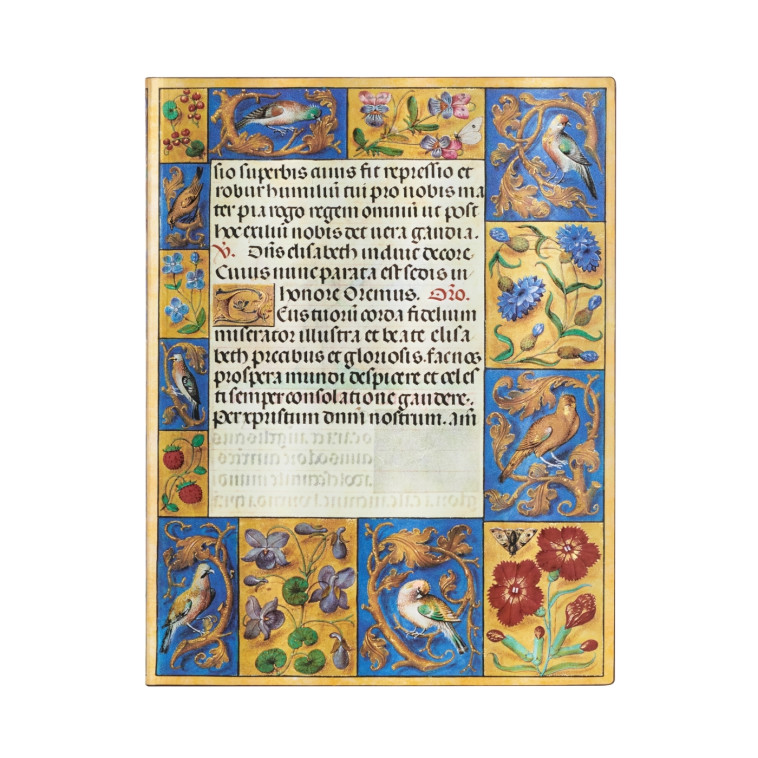 sio superbis cuius fit repressio et
robur humiliū tui pro nobis ma
ter pia rogo regem omniū ut post
hoc exiliū nobis det uera gaudia.
V. Dn̄s elisabeth induic decore.
Cuius nunc parata est sedis in
honore Oremus. Or̄o.
Deus tuorū corda fidelium
miserator illustra et beate elisa
beth precibus et gloriosis. fac nos
prospera mundi despicere et celes
ti semper consolatione gaudere.
Per xp̄istum dnm̄ nostrum. am̄